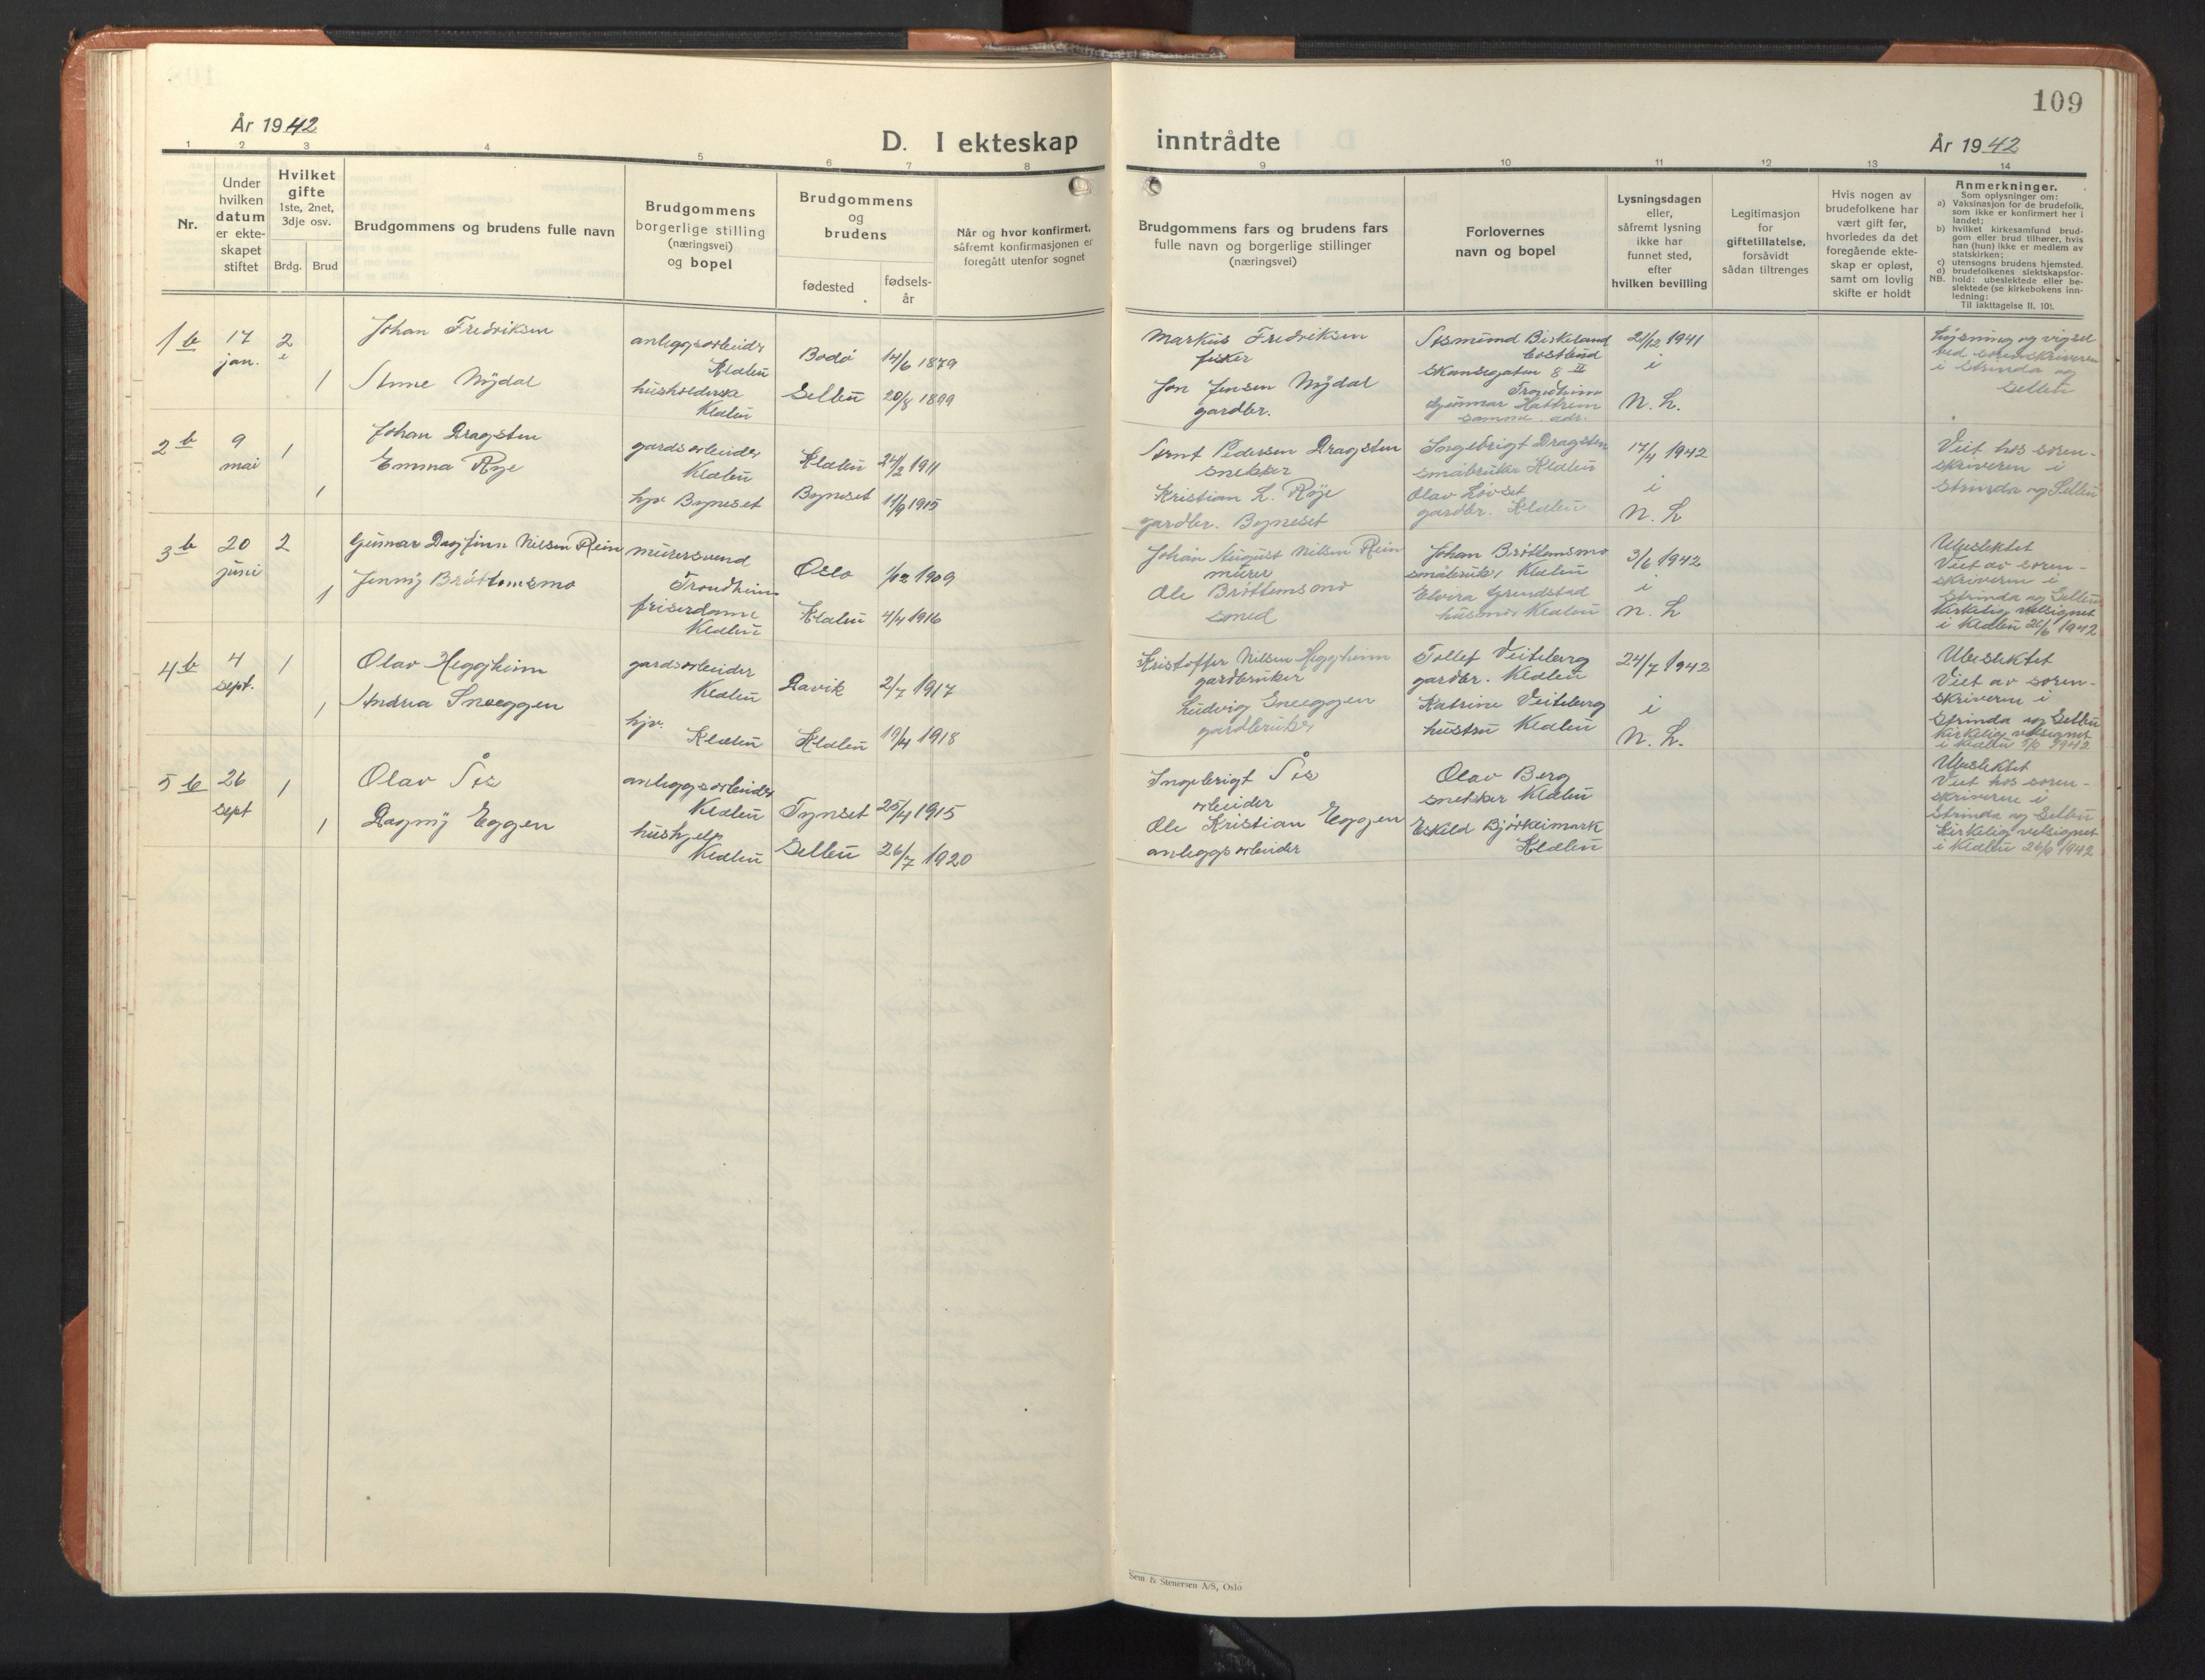 109
År 1942
D. I ekteskap inntrådte
År 1942
1 2 3 4 5 6 7 8 9 10 11 12 13 14
Nr.
Under hvilken datum er ekte-skapet stiftet
Hvilket gifte 1ste, 2net, 3dje osv.
Brdg. Brud
Brudgommens og brudens fulle navn
Brudgommens borgerlige stilling (næringsvei) og bopel
Brudgommens og brudens
fødested
fødsels-år
Når og hvor konfirmert, såfremt konfirmasjonen er foregått utenfor sognet
Brudgommens fars og brudens fars fulle navn og borgerlige stillinger (næringsvei)
Forlovernes navn og bopel
Lysningsdagen eller, såfremt lysning ikke har funnet sted, efter hvilken bevilling
Legitimasjon for giftetillatelse, forsåvidt sådan tiltrenges
Hvis nogen av brudefolkene har vært gift før, hvorledes da det foregående ekte-skap er opløst, samt om lovlig skifte er holdt
Anmerkninger.
Som oplysninger om:
a) Vaksinasjon for de brudefolk, som ikke er konfirmert her i landet;
b) hvilket kirkesamfund brud-gom eller brud tilhører, hvis han (hun) ikke er medlem av statskirken;
c) utensogns brudens hjemsted.
d) brudefolkenes slektskapsfor-
NB. hold: ubeslektede eller be-slektede (se kirkebokens inn-ledning:
Til iakttagelse II. 10).
1 b 17 jan. 2
Johan Fredriksen
anleggsarbeider Klæbu
Bodø 14/6 1879
1 Anne Nydal
husholderske Klæbu
Selbu 20/8 1899
Markus Fredriksen
fisker
Jon Jensen Nydal
gardbr.
Asmund Birkeland
Skansegaten 8 II
Trondheim
Gunnar Hattrem
samme adr.
21/12 1941
i
N. L.
Lysning og vigsel
ved sorenskriveren
i Strinda og
Selbu
2 b 9 mai 1
Johan Dragsten
gardsarbeider Klæbu
Klæbu 24/2 1911
Emma Rye
1
hjv. Byneset
Byneset 11/9 1915
Arnt Pedersen Dragsten
snekker
Kristian L. Røye
gardbr. Byneset
Ingebrigt Dragsten
småbruker Klæbu
Olav Løvset
gardbr. Klæbu
17/4 1942
i
N. L
Viet hos soren-
skriveren i
Strinda og Selbu
3 b 20 juni 2
Gunnar Dagfinn Nilsen Rein
murersvend Trondheim
Oslo 1/12 1909
1 Jenny Brøttemsmo
friserdame Klæbu
Klæbu 4/4 1916
Johan August Nilsen Rein
murer
Ole Brøttemsmo
smed
Johan Brøttemsmo
småbruker Klæbu
Elvera Grendstad
husmor Klæbu
3/6 1942
i
N. L
Ubeslektet
Viet av soren-
skriveren i
Strinda og Selbu
Kirkelig velsignet
i Klæbu 21/6 1942
4 b 4 sept. 1
Olav Heggheim
gardsarbeider Klæbu
Lavik 2/7 1917
1 Andrea Sneeggen
hjv. Klæbu
Klæbu 19/4 1918
Kristoffer Nilsen Heggheim
gardbruker
Ludvig Sneeggen
gardbruker
Tollef Veiteberg
gardbr. Klæbu
Katrine Veiteberg
hustru Klæbu
24/7 1942
i
N. L.
Ubeslektet
Viet av soren-
skriveren i
Strinda og Selbu
Kirkelig velsignet
i Klæbu 1942
5 b 26 sept 1
Olav Ås
anleggsarbeider Klæbu
Tynset 25/4 1915
1 Dagny Eggen
hushjelp Klæbu
Selbu 26/7 1920
Ingebrigt Ås
arbeider
Ole Kristian Eggen
anleggsarbeider
Olav Berg
snekker Klæbu
Eskild Bjørkeimark
Klæbu
Ubeslektet
Viet hos soren-
skriveren i
Strinda og Selbu
Kirkelig velsignet
i Klæbu 26/9 1942
Sem & Stenersen A/S, Oslo